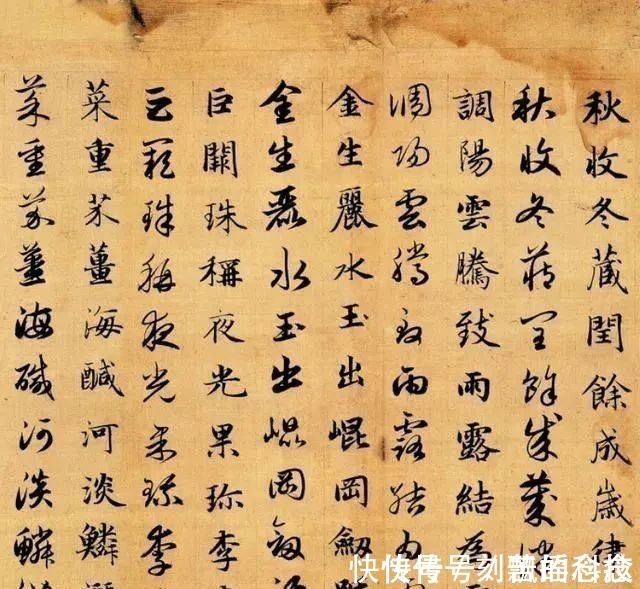 秋收冬蔵閏餘成歲律
秋收冬蔵閏餘成歲律
調陽雲騰致雨露結為
調陽雲騰致雨露結為
金生麗水玉出崐岡劔
金生麗水玉出崐岡劔
巨闕珠稱夜光果珍李
巨闕珠稱夜光果珍李
菜重芥薑海鹹河淡鱗
菜重芥薑海鹹河淡鱗